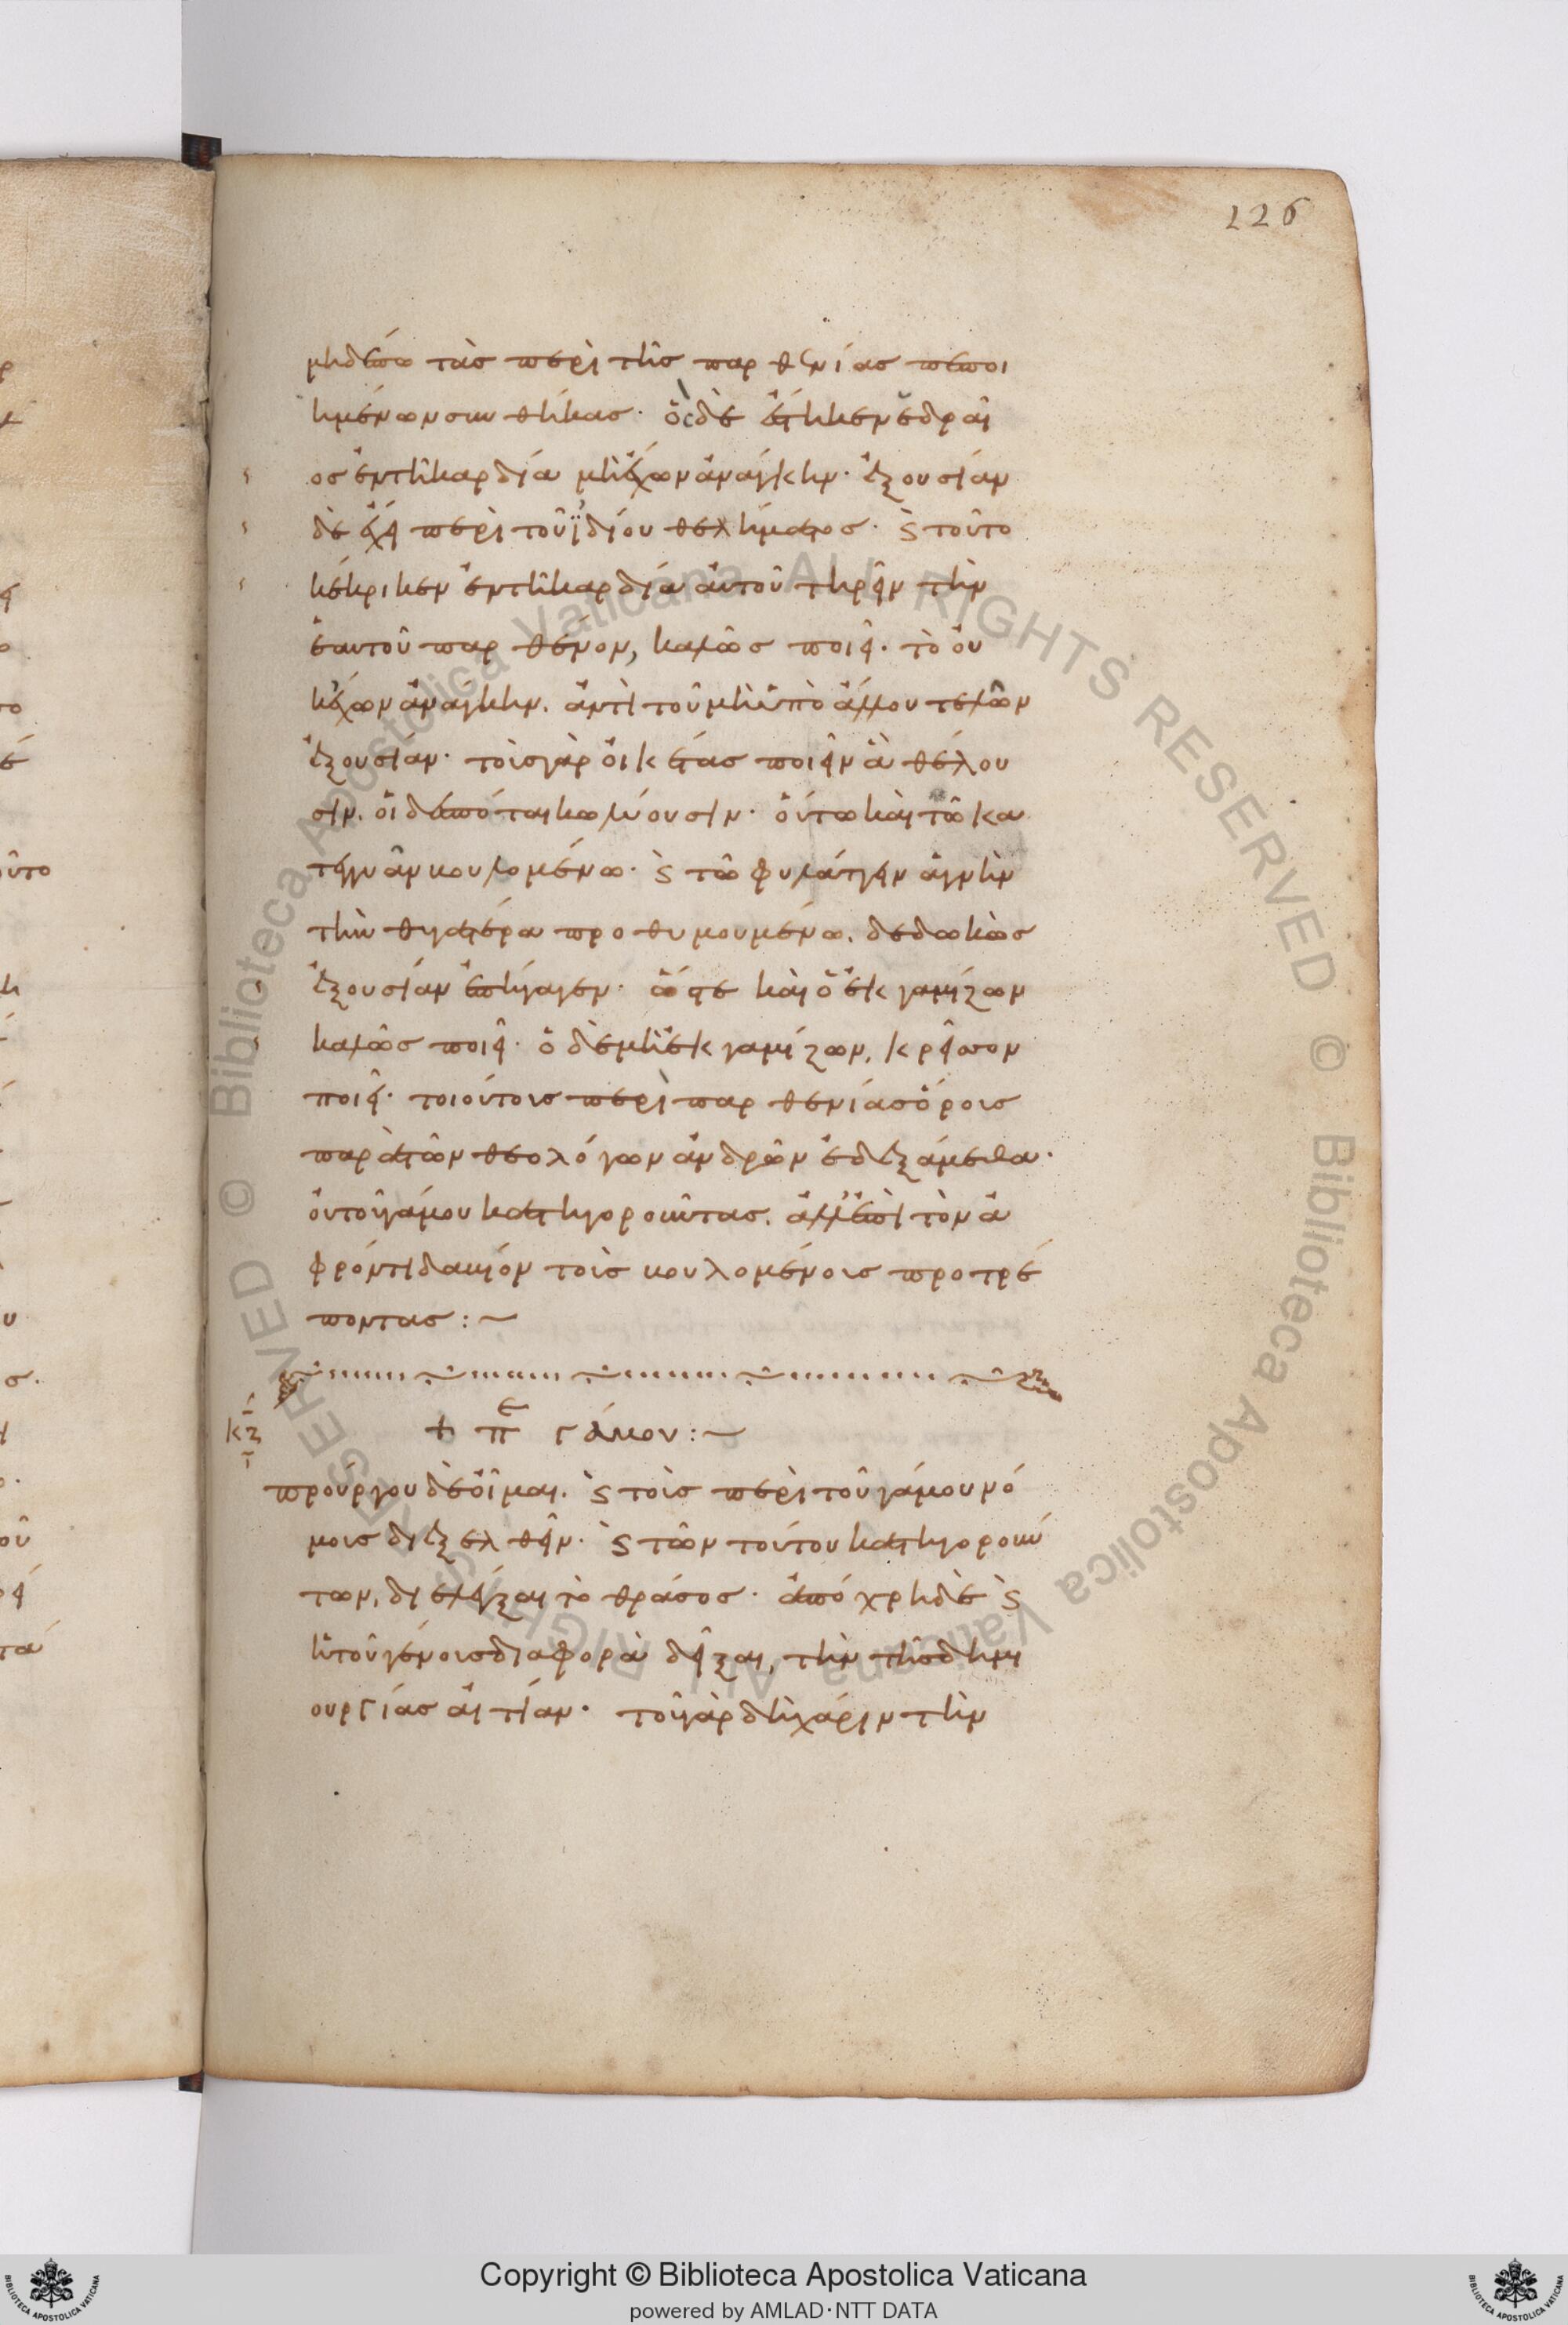 126
μηδέπω τὰσ περὶ τῆσ παρθενίασ πεποι
ημένων συνθήκασ· ὃς δὲ ἕστηκεν ἑδραῖ
οσ ἐν τῆ καρδία μὴ ἔχων ἀνάγκην· ἐξουσίαν
δὲ ἔχει περὶ τοῦ ϊδίου θελήματοσ· ϗ τοῦτο
κέκρικεν ἐν τῆ καρδία ἀυτοῦ τηρεῖν τὴν
ἑαυτοῦ παρθένον, καλῶσ ποιεῖ· τὸ οὐ
κ ἔχων ἀνάγκην. ἀντὶ τοῦ μὴ ὑπὸ ἄλλου τελῶν
ἐξουσίαν· τοῖσ γὰρ οἰκέταισ ποιεῖν ἃ θέλου
σιν. οἱ δεσπόται κωλύουσιν· ὅυτω καὶ τῶ κα
τεγγυᾶν βουλομένω· ϗ τῶ φυλάττειν ἁγνὴν
τὴν θυγατέρα προθυμουμένω. δεδωκὼσ
ἐξουσίαν ἐπήγαγεν· ὥστε καὶ ὁ ἐκγαμίζων
καλῶσ ποιεῖ· ὁ δὲ μὴ ἐκγαμίζων, κρεῖσσον
ποιεῖ· τοιούτοισ περὶ παρθενίασ ὅροισ
παρὰ τῶν θεολόγων ἀνδρῶν ἐδεξάμεθα·
οὐ τοῦ γάμου κατηγοροῦντασ. ἀλλ' ἐπὶ τὸν ἀ
φρόντιδα βιόν τοῖσ βουλομένοισ προτρέ
ποντασ:~
κζ
+ πε γάμου:~
προύργου δὲ οἶμαι. ϗ τοῖσ περὶ τοῦ γάμου νό
μοισ διεξελθεῖν· ϗ τῶν τούτου κατηγορούν
των, διελέγξαι τὸ θράσοσ· ἀπόχρη δὲ ϗ
ἡ τοῦ γένουσ διαφορὰ δεῖξαι, τὴν τῆσ δημι
ουργίασ ἀιτίαν· τοῦ γὰρ δὴ χάριν τὴν
Copyright © Biblioteca Apostolica Vaticana
powered by AMLAD·NTT DATA